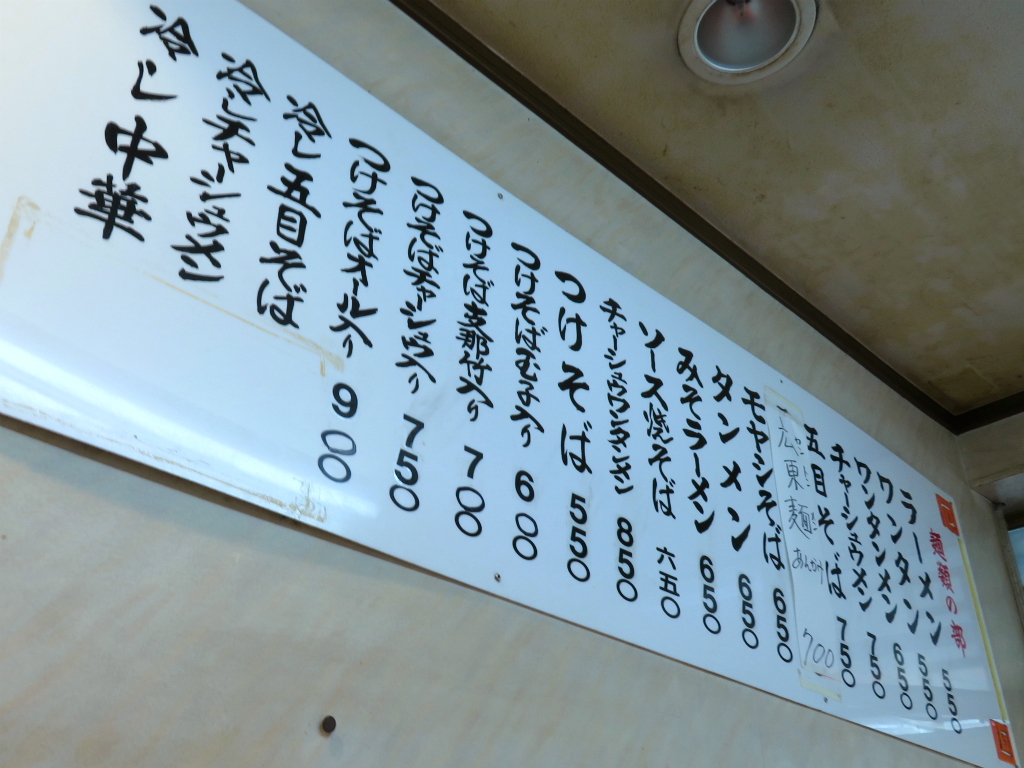 麺類の部
ラーメン 550
ワンタン 550
ワンタンメン 650
チャーシューメン 750
五目そば 750
広東麺 あんかけ 700
モヤシそば 650
タンメン 650
みそラーメン 650
ソース焼そば 六五〇
チャーシューワンタンメン 850
つけそば 550
つけそば 入り 600
つけそば 入り 700
つけそばチャーシュウ入り 750
つけそばオール入り 900
冷し五目そば
冷しチャーシュウメン
冷し中華